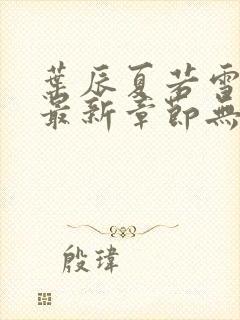 葉辰夏若雪
最新章節無
殷瑋